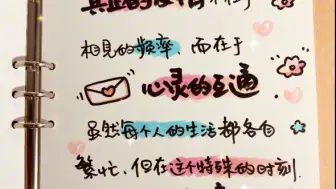 真正的友情不在于
相见的频率,而在于
心灵的互通
虽然每个人的生活都各自
繁忙,但在这个特殊的时刻